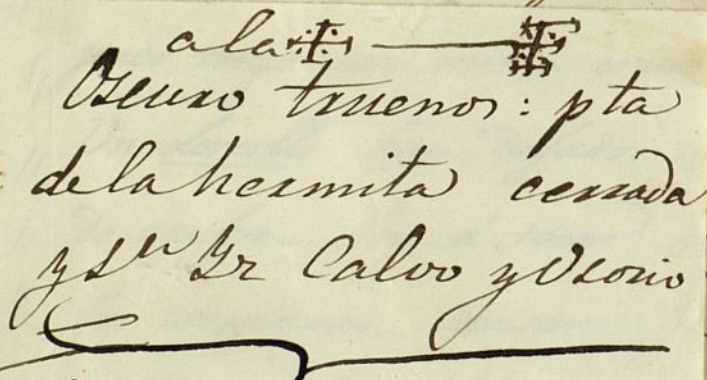 a la ‡ — ‡
Oscuro truenos: pta
de la hermita cerrada
y Sres Calvo y Osorio